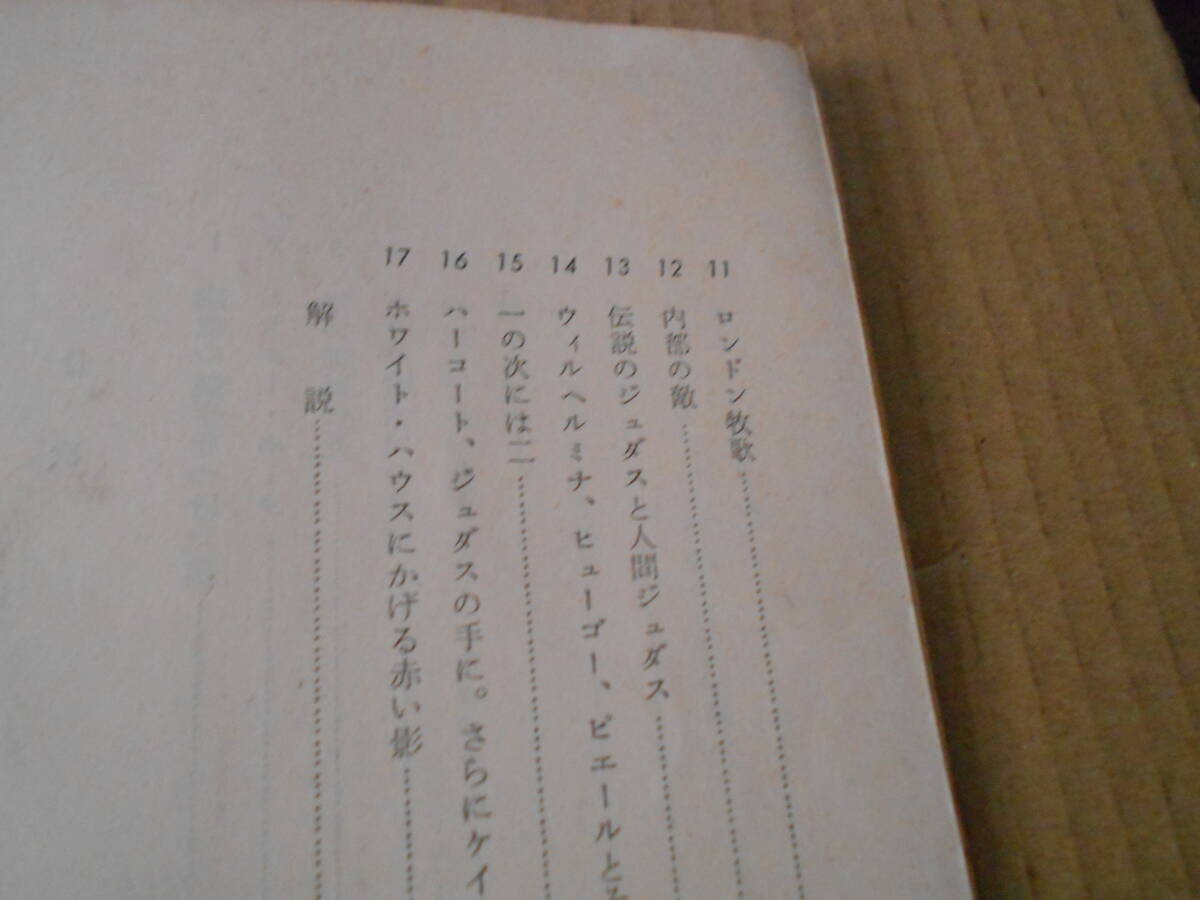 11 ロンドン牧歌
12 内部の敵
13 伝説のジュダスと人間ジュダス
14 ウィルヘルミナ、ヒューゴー、ピエールと
15 一の次には二
16 ハーコート、ジュダスの手に。さらにケイ
17 ホワイト・ハウスにかげる赤い影
解説